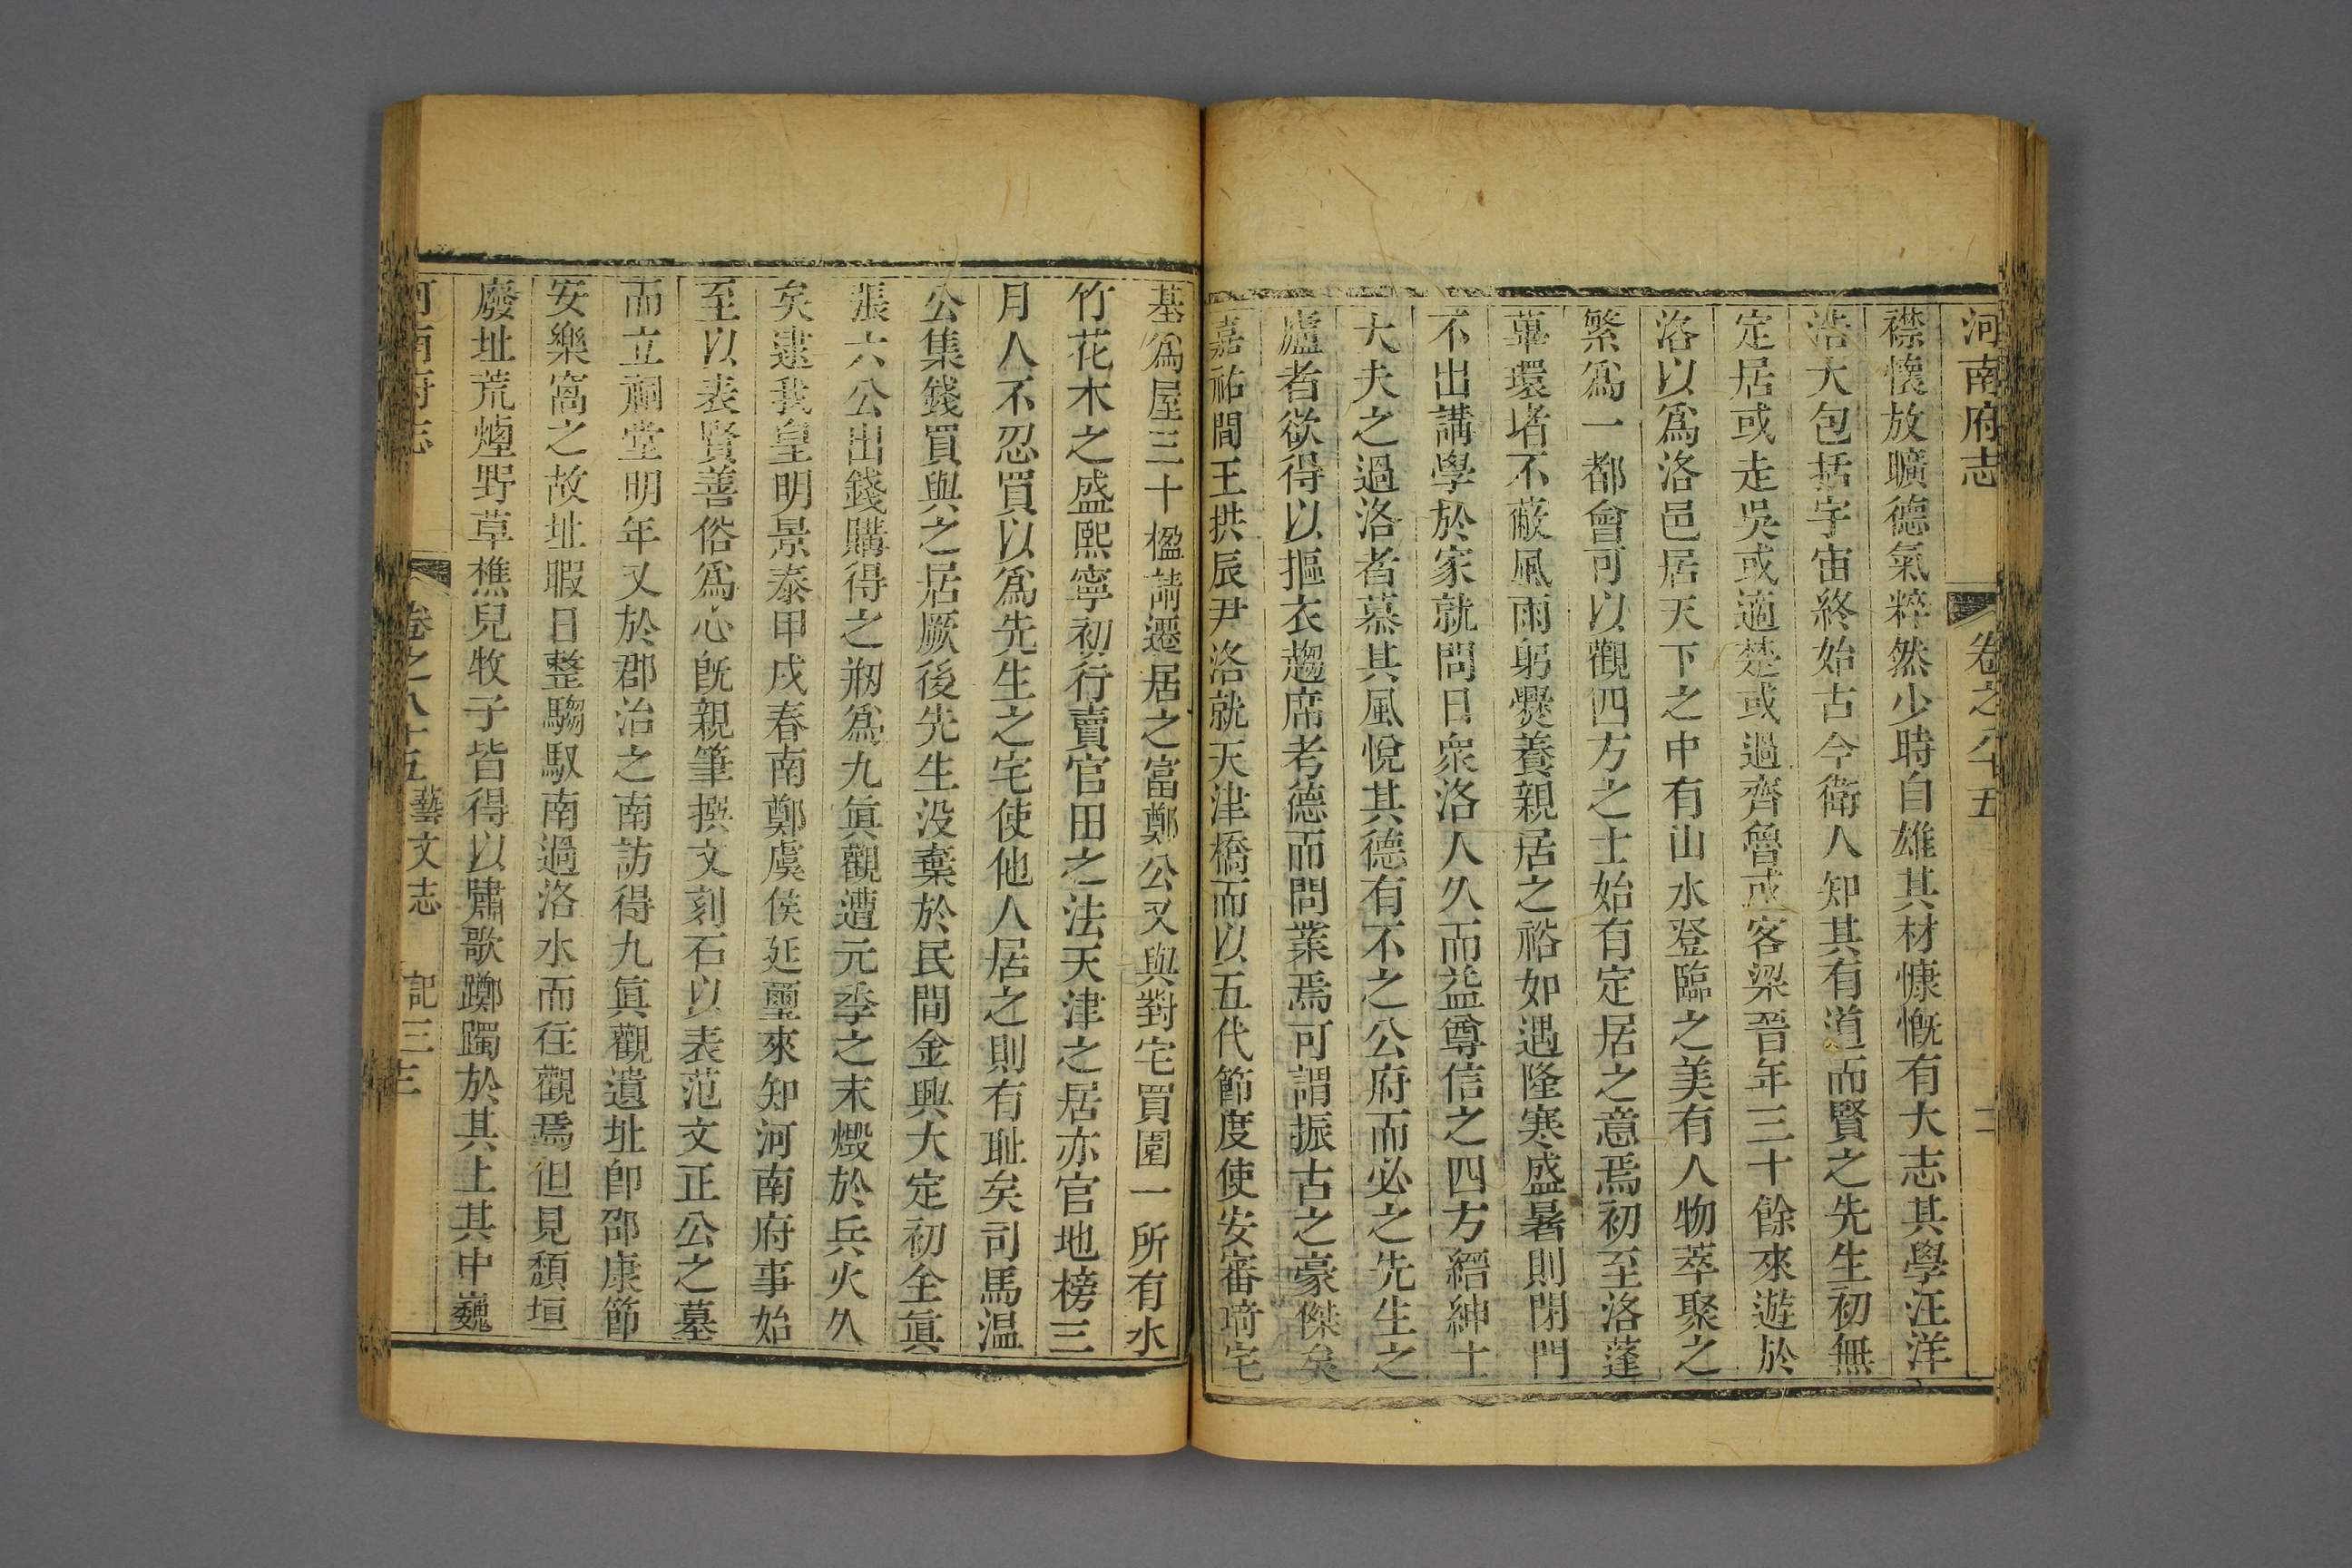 河南府志 卷之八十五 二
襟懷放曠德氣粹然少時自雄其材慷慨有大志其學汪洋
浩大包括宇宙終始古今衛人知其有道而賢之先生初無
定居或走吳或適楚或過齊魯或客梁晉年三十餘來遊於
洛以爲洛邑居天下之中有山水登臨之美有人物萃聚之
繁爲一都會可以觀四方之士始有定居之意焉初至洛蓬
蓽環堵不蔽風雨躬爨養親居之裕如遇隆寒盛暑則閉門
不出講學於家就問日衆洛人久而益尊信之四方縉紳士
大夫之過洛者慕其風悅其德有不之公府而必之先生之
廬者欲得以摳衣趨席考德而問業焉可謂振古之豪傑矣
嘉祐間王拱辰尹洛就天津橋而以五代節度使安審琦宅
基爲屋三十楹請遷居之富鄭公又與對宅買園一所有水
竹花木之盛熙寧初行賣官田之法天津之居亦官地榜三
月人不忍買以爲先生之宅使他人居之則有耻矣司馬温
公集錢買與之居厥後先生没棄於民間金興大定初全眞
張六公出錢購得之剏爲九眞觀遭元季之末燬於兵火久
矣逮我皇明景泰甲戌春南鄭虞侯廷璽來知河南府事始
至以表賢善俗爲心旣親筆撰文刻石以表范文正公之墓
而立祠堂明年又於郡治之南訪得九眞觀遺址卽邵康節
安樂窩之故址暇日整騶馭南過洛水而往觀焉但見頽垣
廢址荒煙野草樵兒牧子皆得以嘯歌躑躅於其上其中巍
河南府志 卷之八十五 藝文志 記三 三